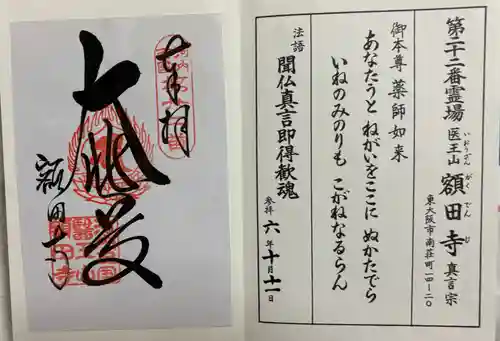 第二十二番霊場
医王山
いおうざん
額田寺
がくでんじ
真言宗
東大阪市南荘町一四ー二〇
御本尊 薬師如来
あなたうと ねがいをここに ぬかたでら
いねのみのりも こがねなるらん
法語 聞仏真言即得歓魂
参拝 六年十月十一日
奉拝
額田寺